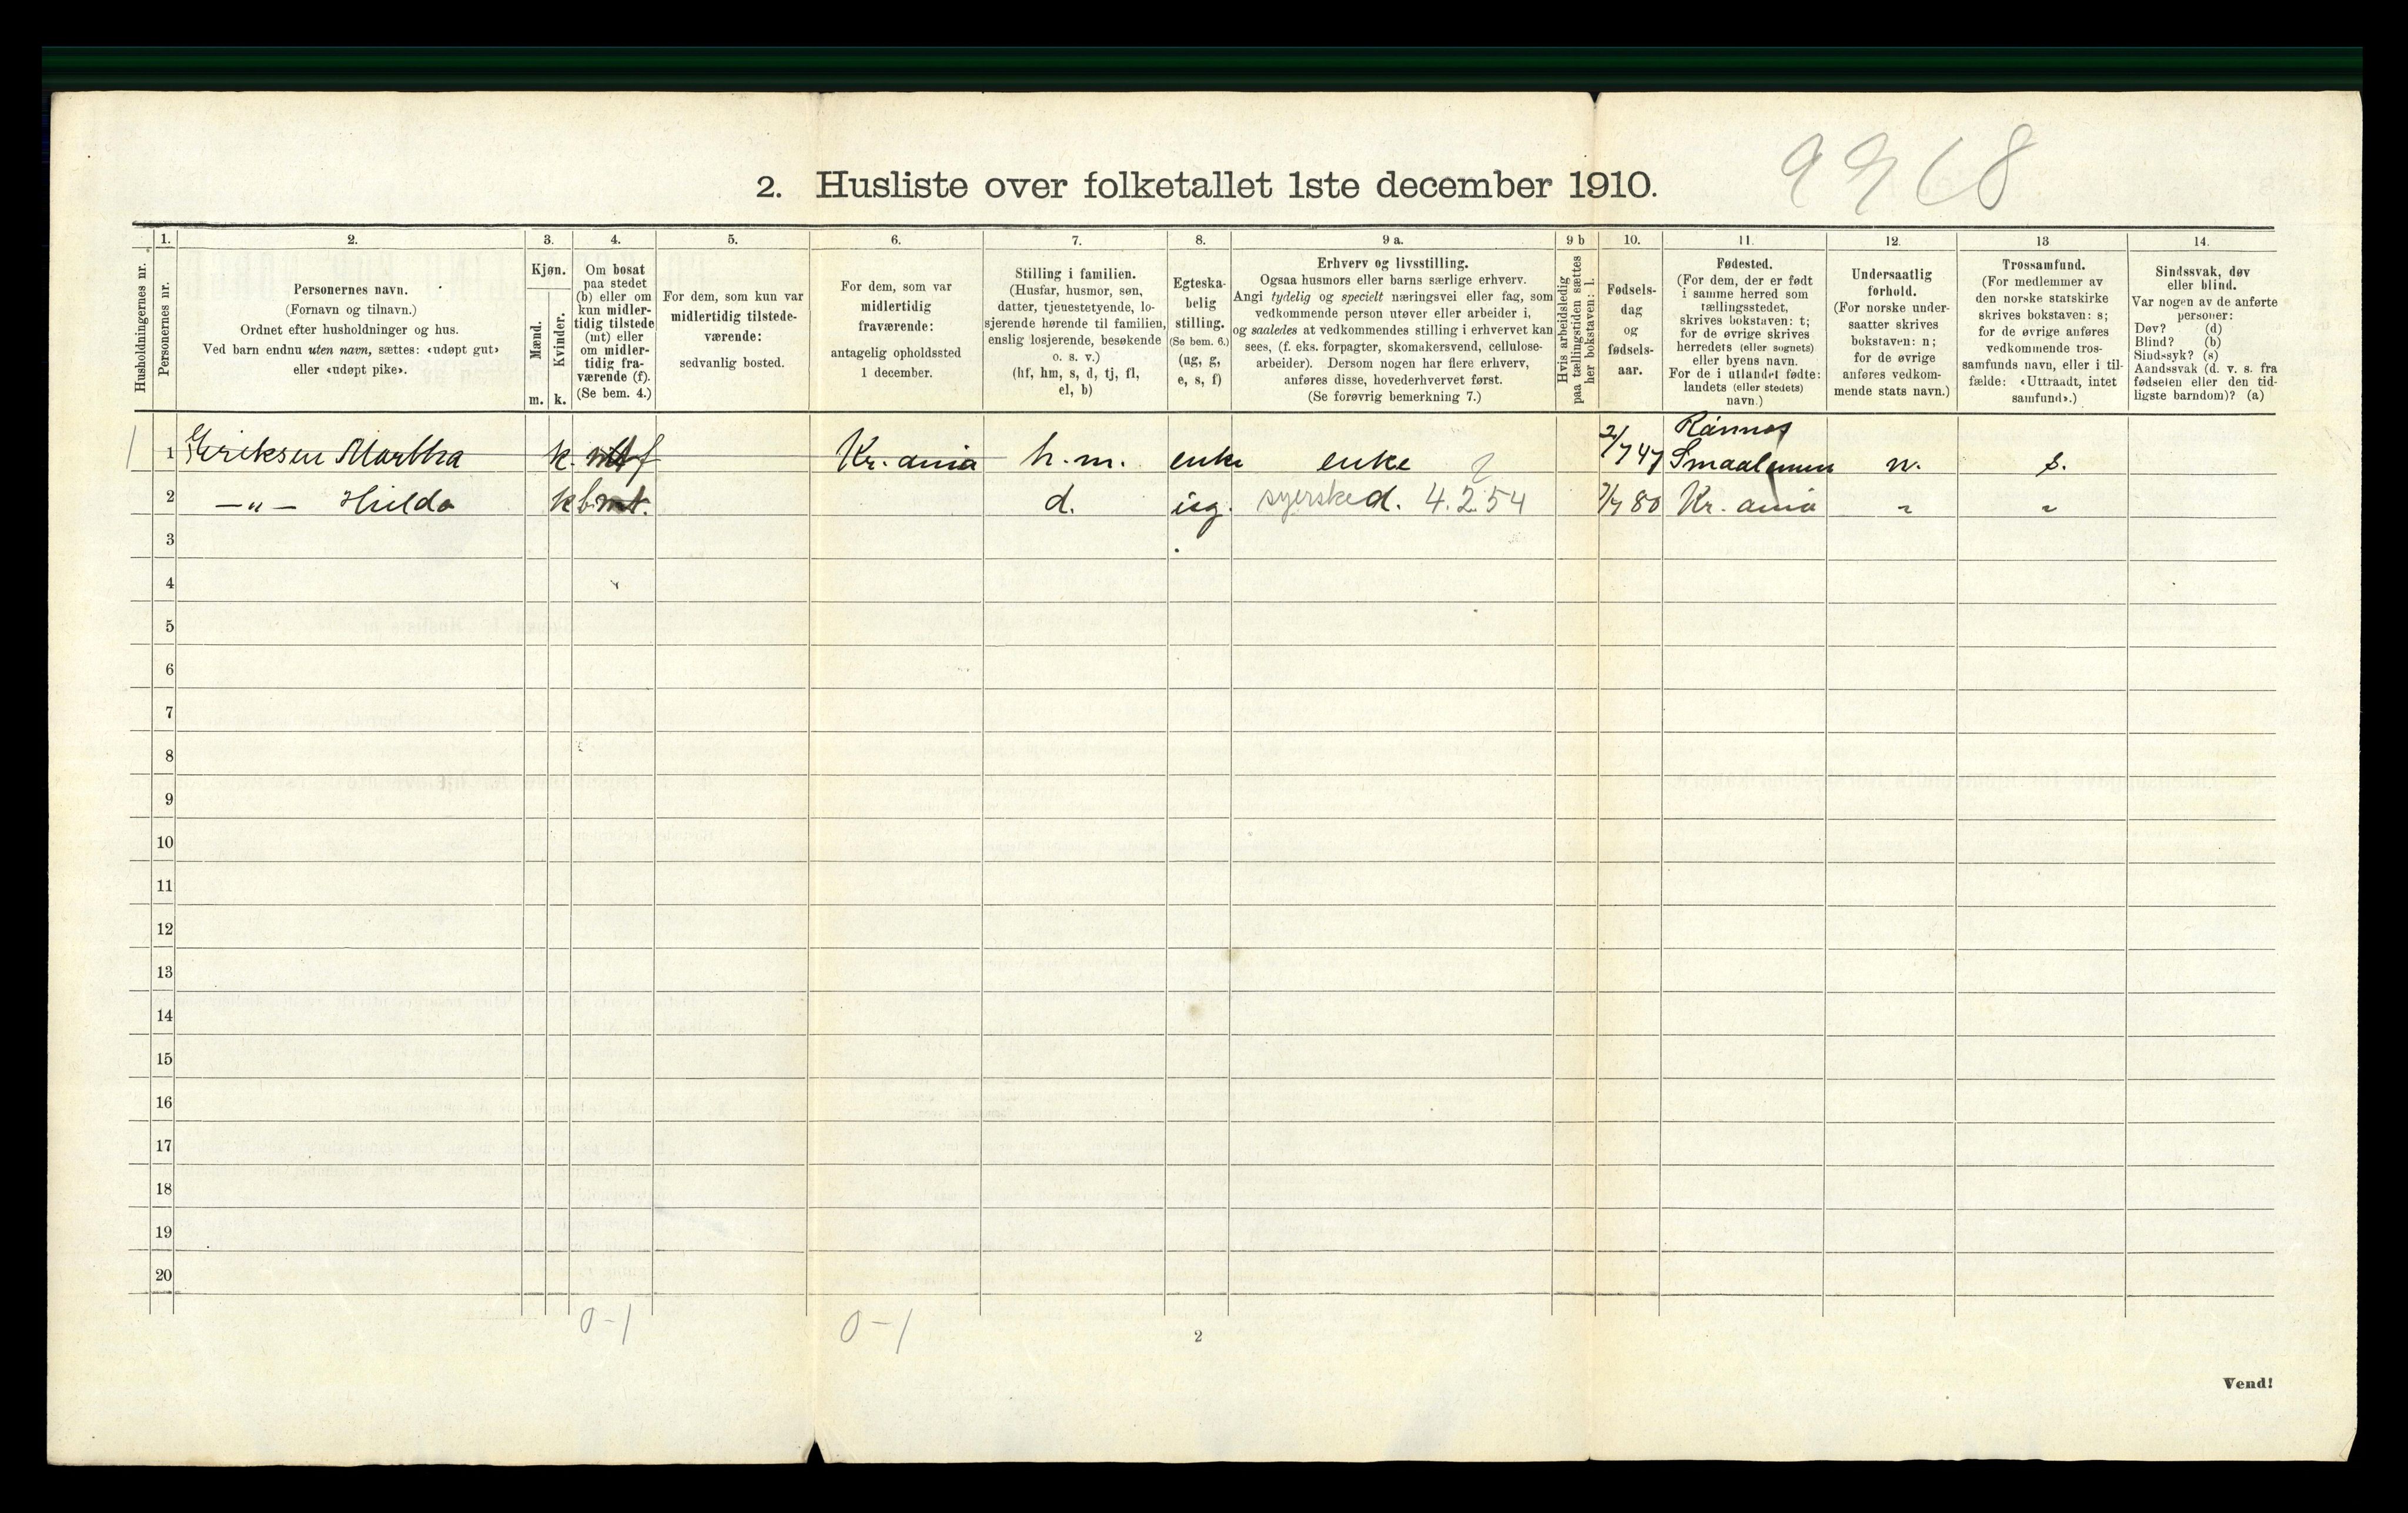 9968
2. Husliste over folketallet 1ste december 1910.
1. 2. 3. 4. 5. 6. 7. 8. 9 a. 9 b 10. 11. 12. 13 14.
Husholdningernes nr.
Personernes nr.
Personernes navn.
(Fornavn og tilnavn.)
Ordnet efter husholdninger og hus.
Ved barn endnu uten navn, sættes: «udøpt gut»
eller «udøpt pike».
Kjøn.
Mænd.
Kvinder.
m. k.
Om bosat
paa stedet
(b) eller om
kun midler-
tidig tilstede
(mt) eller
om midler-
tidig fra-
værende (f).
(Se bem. 4.)
For dem, som kun var
midlertidig tilstede-
værende:
sedvanlig bosted.
For dem, som var
midlertidig
fraværende:
antagelig opholdssted
1 december.
Stilling i familien.
(Husfar, husmor, søn,
datter, tjenestetyende, lo-
sjerende hørende til familien,
enslig losjerende, besøkende
o. s. v.)
(hf, hm, s, d, tj, fl,
el, b)
Egteska-
belig
stilling.
(Se bem. 6.)
(ug, g,
e, s, f)
Erhverv og livsstilling.
Ogsaa husmors eller barns særlige erhverv.
Angi tydelig og specielt næringsvei eller fag, som
vedkommende person utøver eller arbeider i,
og saaledes at vedkommendes stilling i erhvervet kan
sees, (f. eks. forpagter, skomakersvend, cellulose-
arbeider). Dersom nogen har flere erhverv,
anføres disse, hovederhvervet først.
(Se forøvrig bemerkning 7.)
Hvis arbeidsledig
paa tællingstiden sættes
her bokstaven: l.
Fødsels-
dag
og
fødsels-
aar.
Fødested.
(For dem, der er født
i samme herred som
tællingsstedet,
skrives bokstaven: t;
for de øvrige skrives
herredets (eller sognets)
eller byens navn.
For de i utlandet fødte:
landets (eller stedets)
navn.)
Undersaatlig
forhold.
(For norske under-
saatter skrives
bokstaven: n;
for de øvrige
anføres vedkom-
mende stats navn.)
Trossamfund.
(For medlemmer av
den norske statskirke
skrives bokstaven: s;
for de øvrige anføres
vedkommende tros-
samfunds navn, eller i til-
fælde: «Uttraadt, intet
samfund».)
Sindssvak, døv
eller blind.
Var nogen av de anførte
personer:
Døv? (d)
Blind? (b)
Sindssyk? (s)
Aandssvak (d. v. s. fra
fødselen eller den tid-
ligste barndom)? (a)
1 1 Eriksen Martha k. mt f Kr. ania h.m. enke enke 2/7 47 Smaalenene n. s.
2 —„— Hilda k b mt. d. ug. syerske d. 4.2.54 7/7 80 Kr. ania „ „
3
4
5
6
7
8
9
10
11
12
13
14
15
16
17
18
19
20
0-1 0-1
2
Vend!